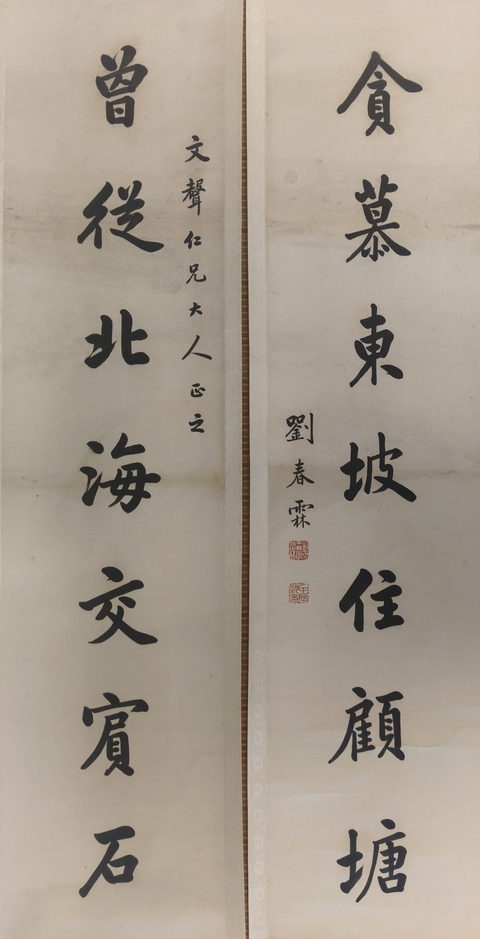 貪慕東坡住顧塘
劉春霖
文聲仁兄大人正之
曾從北海交賓石